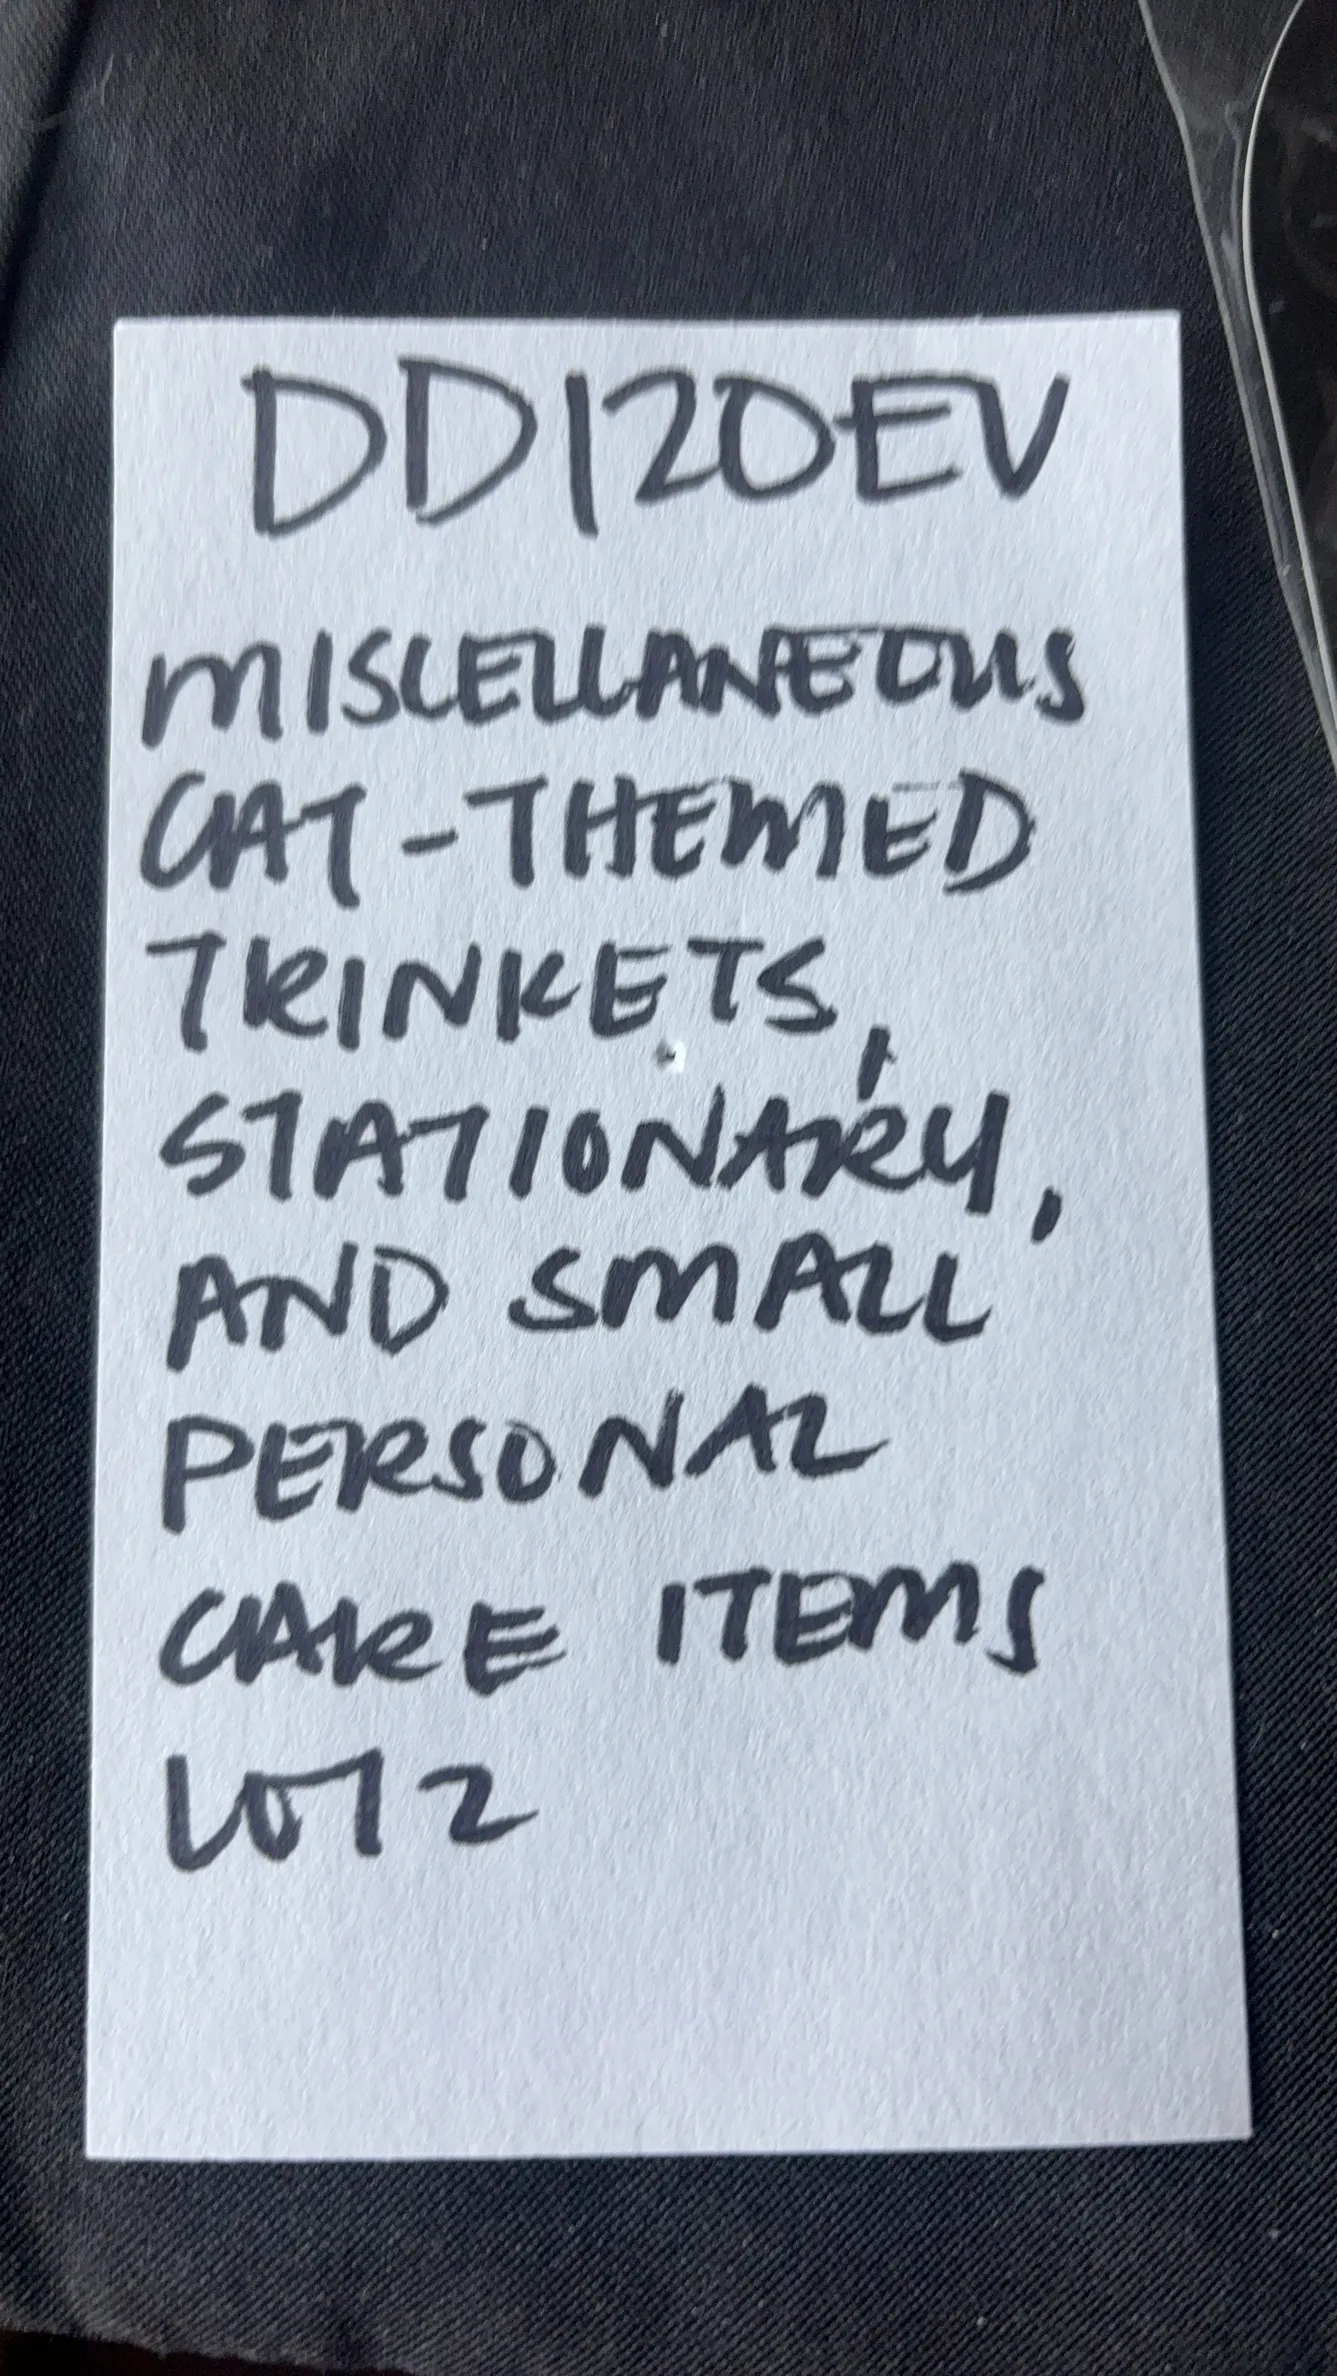 DD120EV
MISCELLANEOUS
CAT-THEMED
TRINKETS,
STATIONARY,
AND SMALL
PERSONAL
CARE ITEMS
LOT 2